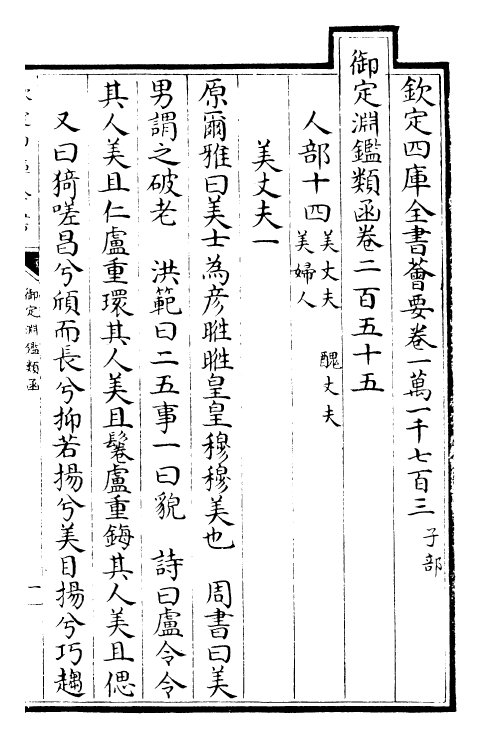 欽定四庫全書薈要卷一萬一千七百三 子部
御定淵鑑類函卷二百五十五
人部十四 美丈夫 醜丈夫
美婦人
美丈夫一
原爾雅曰美士為彦暀暀皇皇穆穆美也 周書曰美
男謂之破老 洪範曰二五事一曰貌 詩曰盧令令
其人美且仁盧重環其人美且鬈盧重鋂其人美且偲
又曰猗嗟昌兮頎而長兮抑若揚兮美目揚兮巧趨
御定淵鑑類函
一